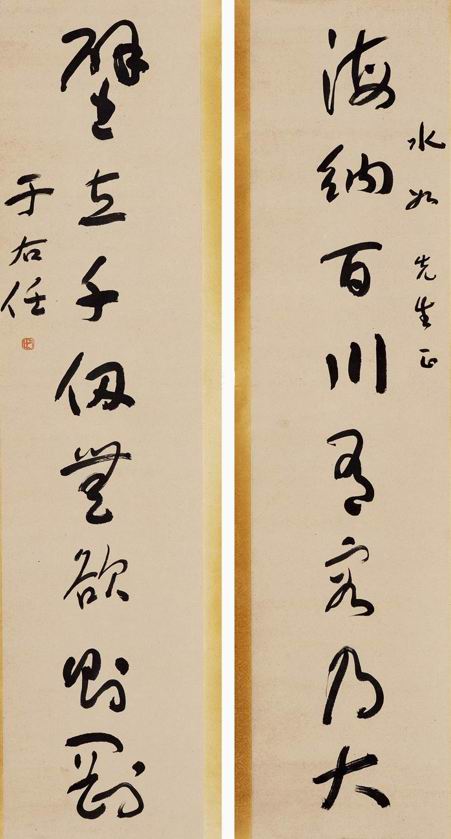 水如先生正
海纳百川有容乃大
壁立千仞無欲則剛
于右任